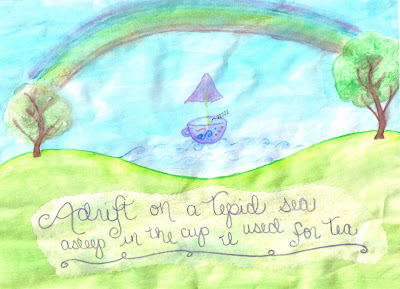 Adrift on a tepid sea
asleep in the cup it used for tea